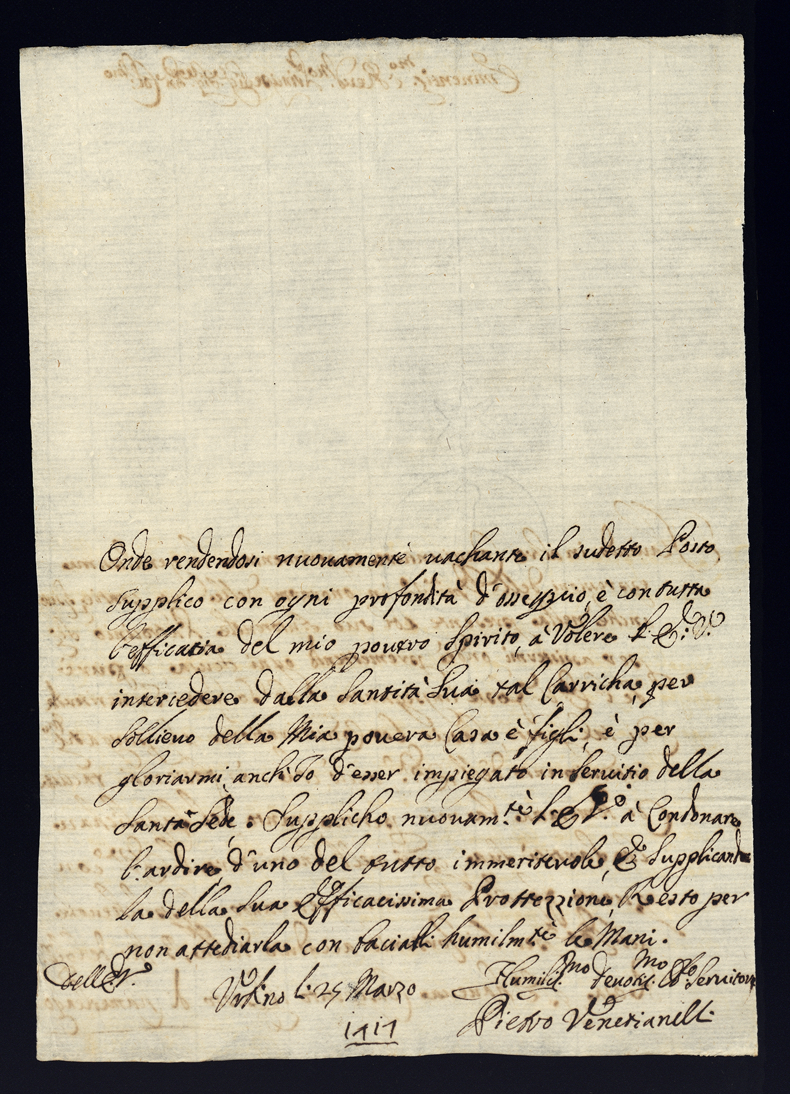 Onde rendendosi nuouamente uachante il sudetto Posto
supplico con ogni profondità d'ossequio, è con tutta
l'efficatia del mio pouero Spirito, à Volere l'E: V:
intercedere dalla Santità Sua tal Carricha, per
sollieuo della Mia pouera Casa è figli, è per
gloriarmi anch'Io d'esser impiegato in seruitio della
Santa Sede. Supplicho nuouam.te l'E: V: à Condonare
l'ardire d'uno del tutto immeriteuole, & Supplicando
la della Sua Efficacissima Prottezzione, Resto per
non attediarla con baciarli humilm.te le Mani.
Dell'E: V:
Vrbino li 25 Marzo
1717
Humiliss.mo Deuotiss.mo Seruitore
Pietro Venetianelli